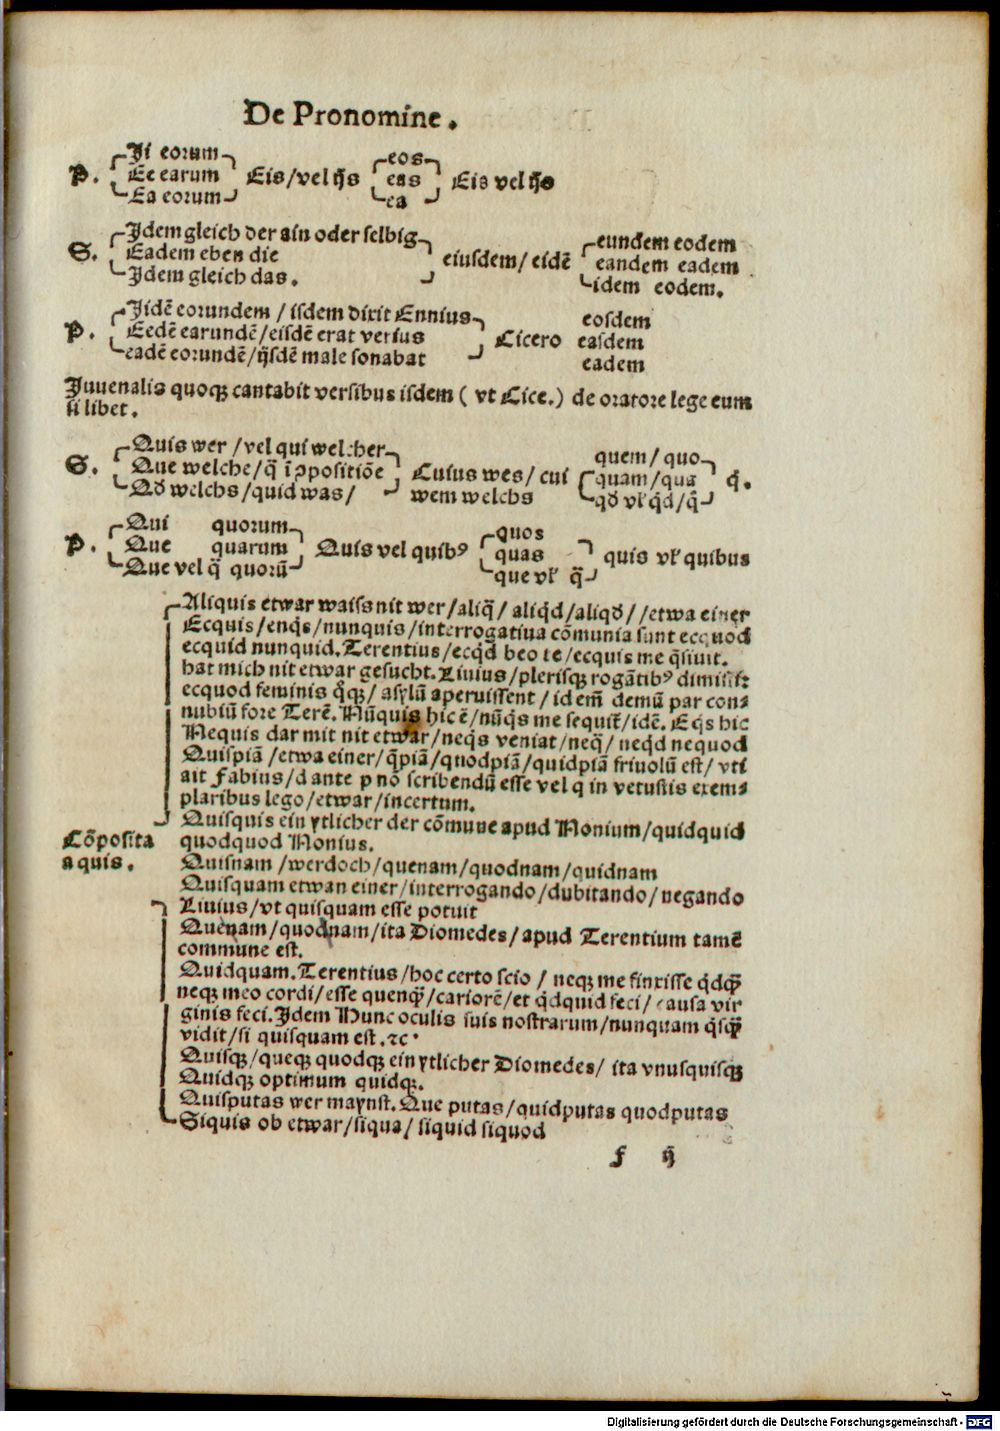 De Pronomine.
P. Ii eorum
Ee earum Eis/vel ijs eos eas ea Eis vel ijs
Ea eorum
S. Idem gleich der ain oder selbig
Eadem eben die eiusdem/ eidē
Idem gleich das.
eundem eodem
eandem eadem
idem eodem.
P. Iidē eorundem / isdem dixit Ennius
Eedē earundē/eisdē erat verius Cicero
eadē eorundē/ijsdē male sonabat
eosdem
easdem
eadem
Iuuenalis quoqꝫ cantabit versibus iisdem ( vt Cice.) de oratore lege eum
si libet.
S. Quis wer /vel qui welcher
Que welche/q̄ ī ꝓpositiōe
Qđ welchs/quid was/
Cuius wes/ cui
wem welchs
quem/ quo
quam/qua q̇.
qđ vꝉ q̇d/q̄
P. Qui quorum
Que quarum
Que vel q̄ quorū
Quis vel quibꝰ
quos
quas
que vꝉ q̄
quis vꝉ quibus
Aliquis etwar waiss nit wer/aliq̄/ aliq̇d/aliqđ/ /etwa einer
Ecquis/enq̇s/nunquis/interrogatiua cōmunia sunt ecquod
ecquid nunquid. Terentius/ecq̇d beo te/ecquis me q̄siuit.
hat mich nit etwar gesucht. Liuius/plerisqꝫ rogātibꝰ dimissi:
ecquod feminis q̇qꝫ/ asylū aperuissent/ id em̄ demū par con⸗
nubiū fore Terē. Nūquis hic ē/nūq̇s me sequit̄/idē. Eq̇s hic
Nequis dar mit nit etwar/neq̇s veniat/neq̄/ neq̇d nequod
Quispiā /etwa einer/q̄piā/quodpiā/quidpiā friuolū est/ vti
ait Fabius/d ante p nō scribendū esse vel q in vetustis exem⸗
plaribus lego/etwar/incertum.
Quisquis ein ytlicher der cōmune apud Nonium/quidquid
quodquod Nonius.
Cōposita
a quis.
Quisnam /werdoch/quenam/quodnam/quidnam
Quisquam etwan einer/interrogando/dubitando/negando
Liuius/vt quisquam esse potuit
Quenam/quodnam/ita Diomedes/apud Terentium tamē
commune est.
Quidquam. Terentius/hoc certo scio / neqꝫ me finxisse q̇dqꝫ̄
neqꝫ meo cordi/esse quenqꝫ̄/cariorē/et q̇dquid feci/ causa vir
ginis feci. Idem Nunc oculis suis nostrarum/nunquam q̇sqꝫ̄
vidit/si quisquam est .⁊c.
Quisqꝫ/queqꝫ quodqꝫ ein ytlicher Diomedes/ ita vnusquisqꝫ
Quidqꝫ optimum quidqꝫ.
Quisputas wer maynst. Que putas/quidputas quodputas
Siquis ob etwar/siqua/ siquid siquod
f ij
Digitalisierung gefördert durch die Deutsche Forschungsgemeinschaft - DFG